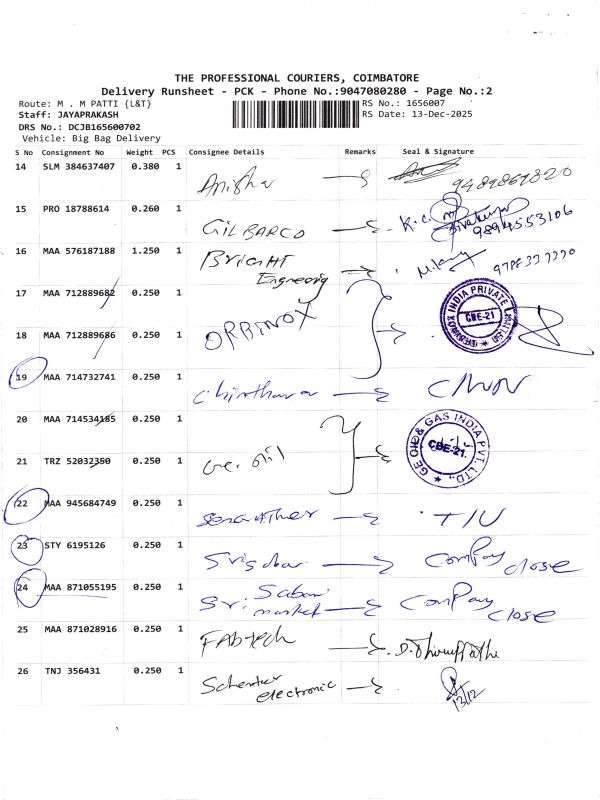 THE PROFESSIONAL COURIERS, COIMBATORE
Delivery Runsheet - PCK - Phone No.:9047080280 - Page No.:2
Route: M . M PATTI {L&T}
RS No.: 1656007
Staff: JAYAPRAKASH
RS Date: 13-Dec-2025
DRS No.: DCJB165600702
Vehicle: Big Bag Delivery
S No Consignment No Weight PCS Consignee Details Remarks Seal & Signature
14 SLM 384637407 0.380 1 Anisha
15 PRO 18788614 0.260 1 GILBARCO 9894553106
16 MAA 576187188 1.250 1 Bright
Engneerig
17 MAA 712889682 0.250 1
OVERNMOX INDIA PRIVATE LIMITED CBE-21
18 MAA 712889686 0.250 1 ORBINOX
19 MAA 714732741 0.250 1
20 MAA 714534185 0.250 1
GE OIL & GAS INDIA PVT. LTD., CBE-21.
21 TRZ 52032350 0.250 1 Ge. oil
22 MAA 945684749 0.250 1
23 STY 6195126 0.250 1 ComPay close
24 MAA 871055195 0.250 1 Sri Sabari market ComPay close
25 MAA 871028916 0.250 1 FAbtech
26 TNJ 356431 0.250 1 electronic
13/12